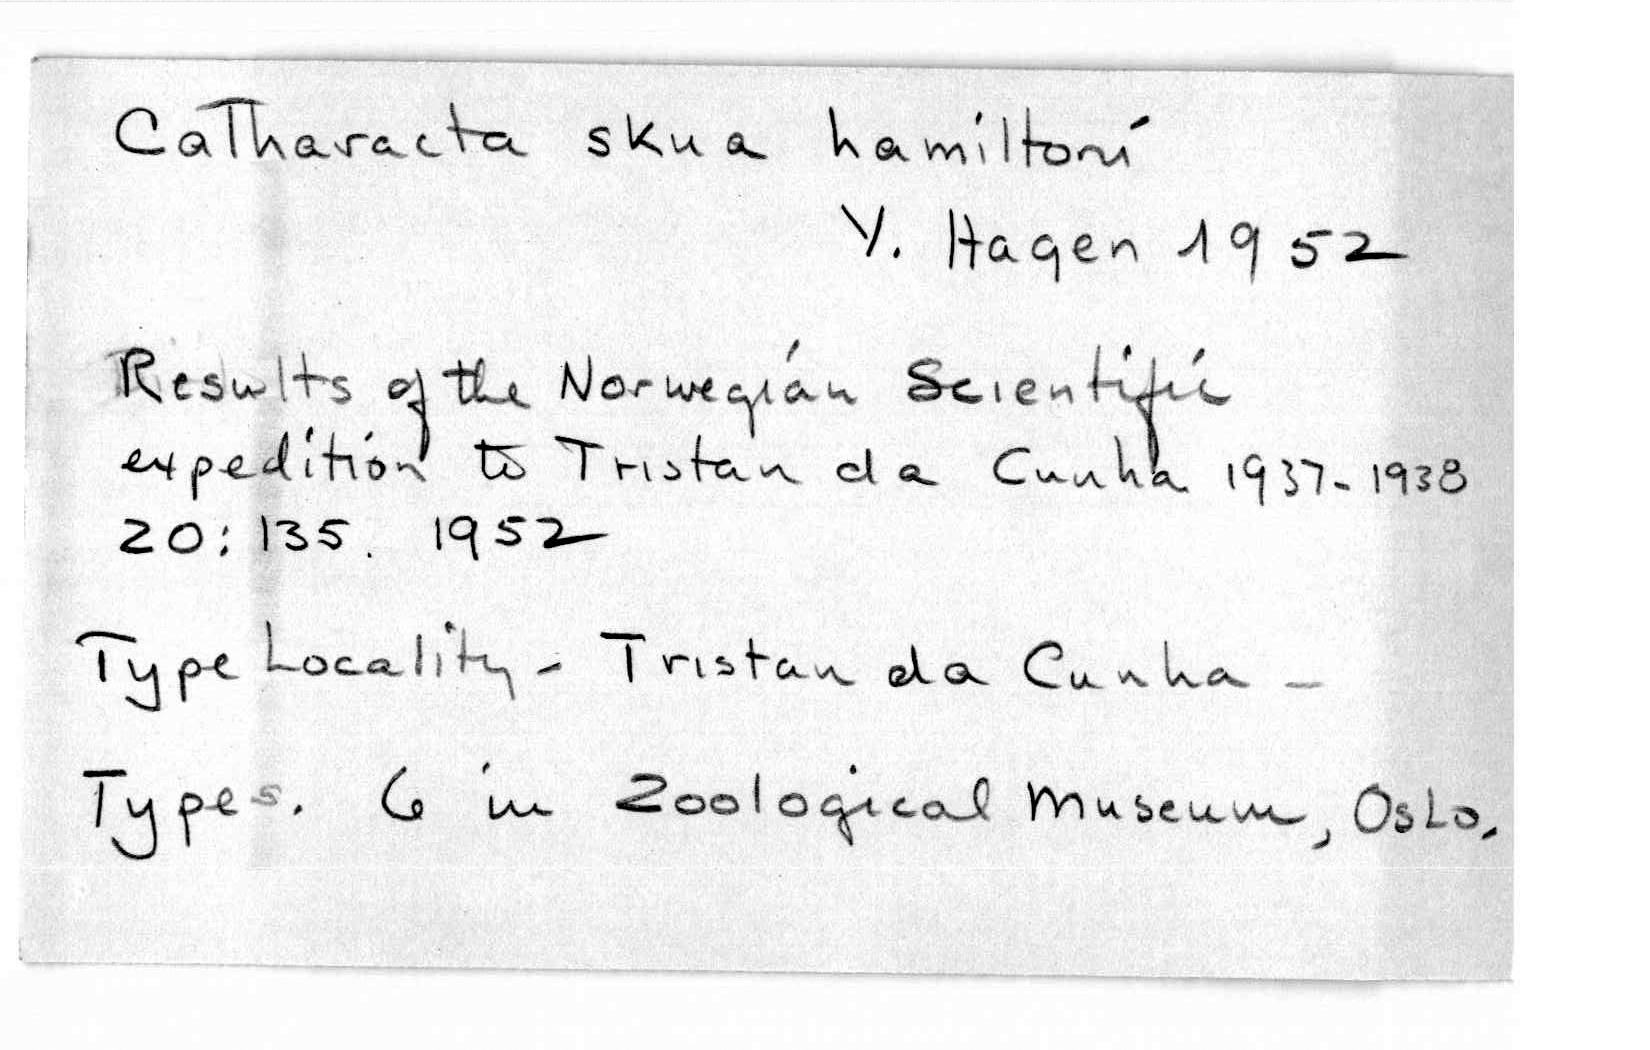 Catharacta skua hamiltoni
Y. Hagen 1952
Results of the Norwegian Scientific
expedition to Tristan da Cunha 1937-1938
20: 135. 1952
Type Locality - Tristan da Cunha -
Types. 6 in Zoological Museum, Oslo.